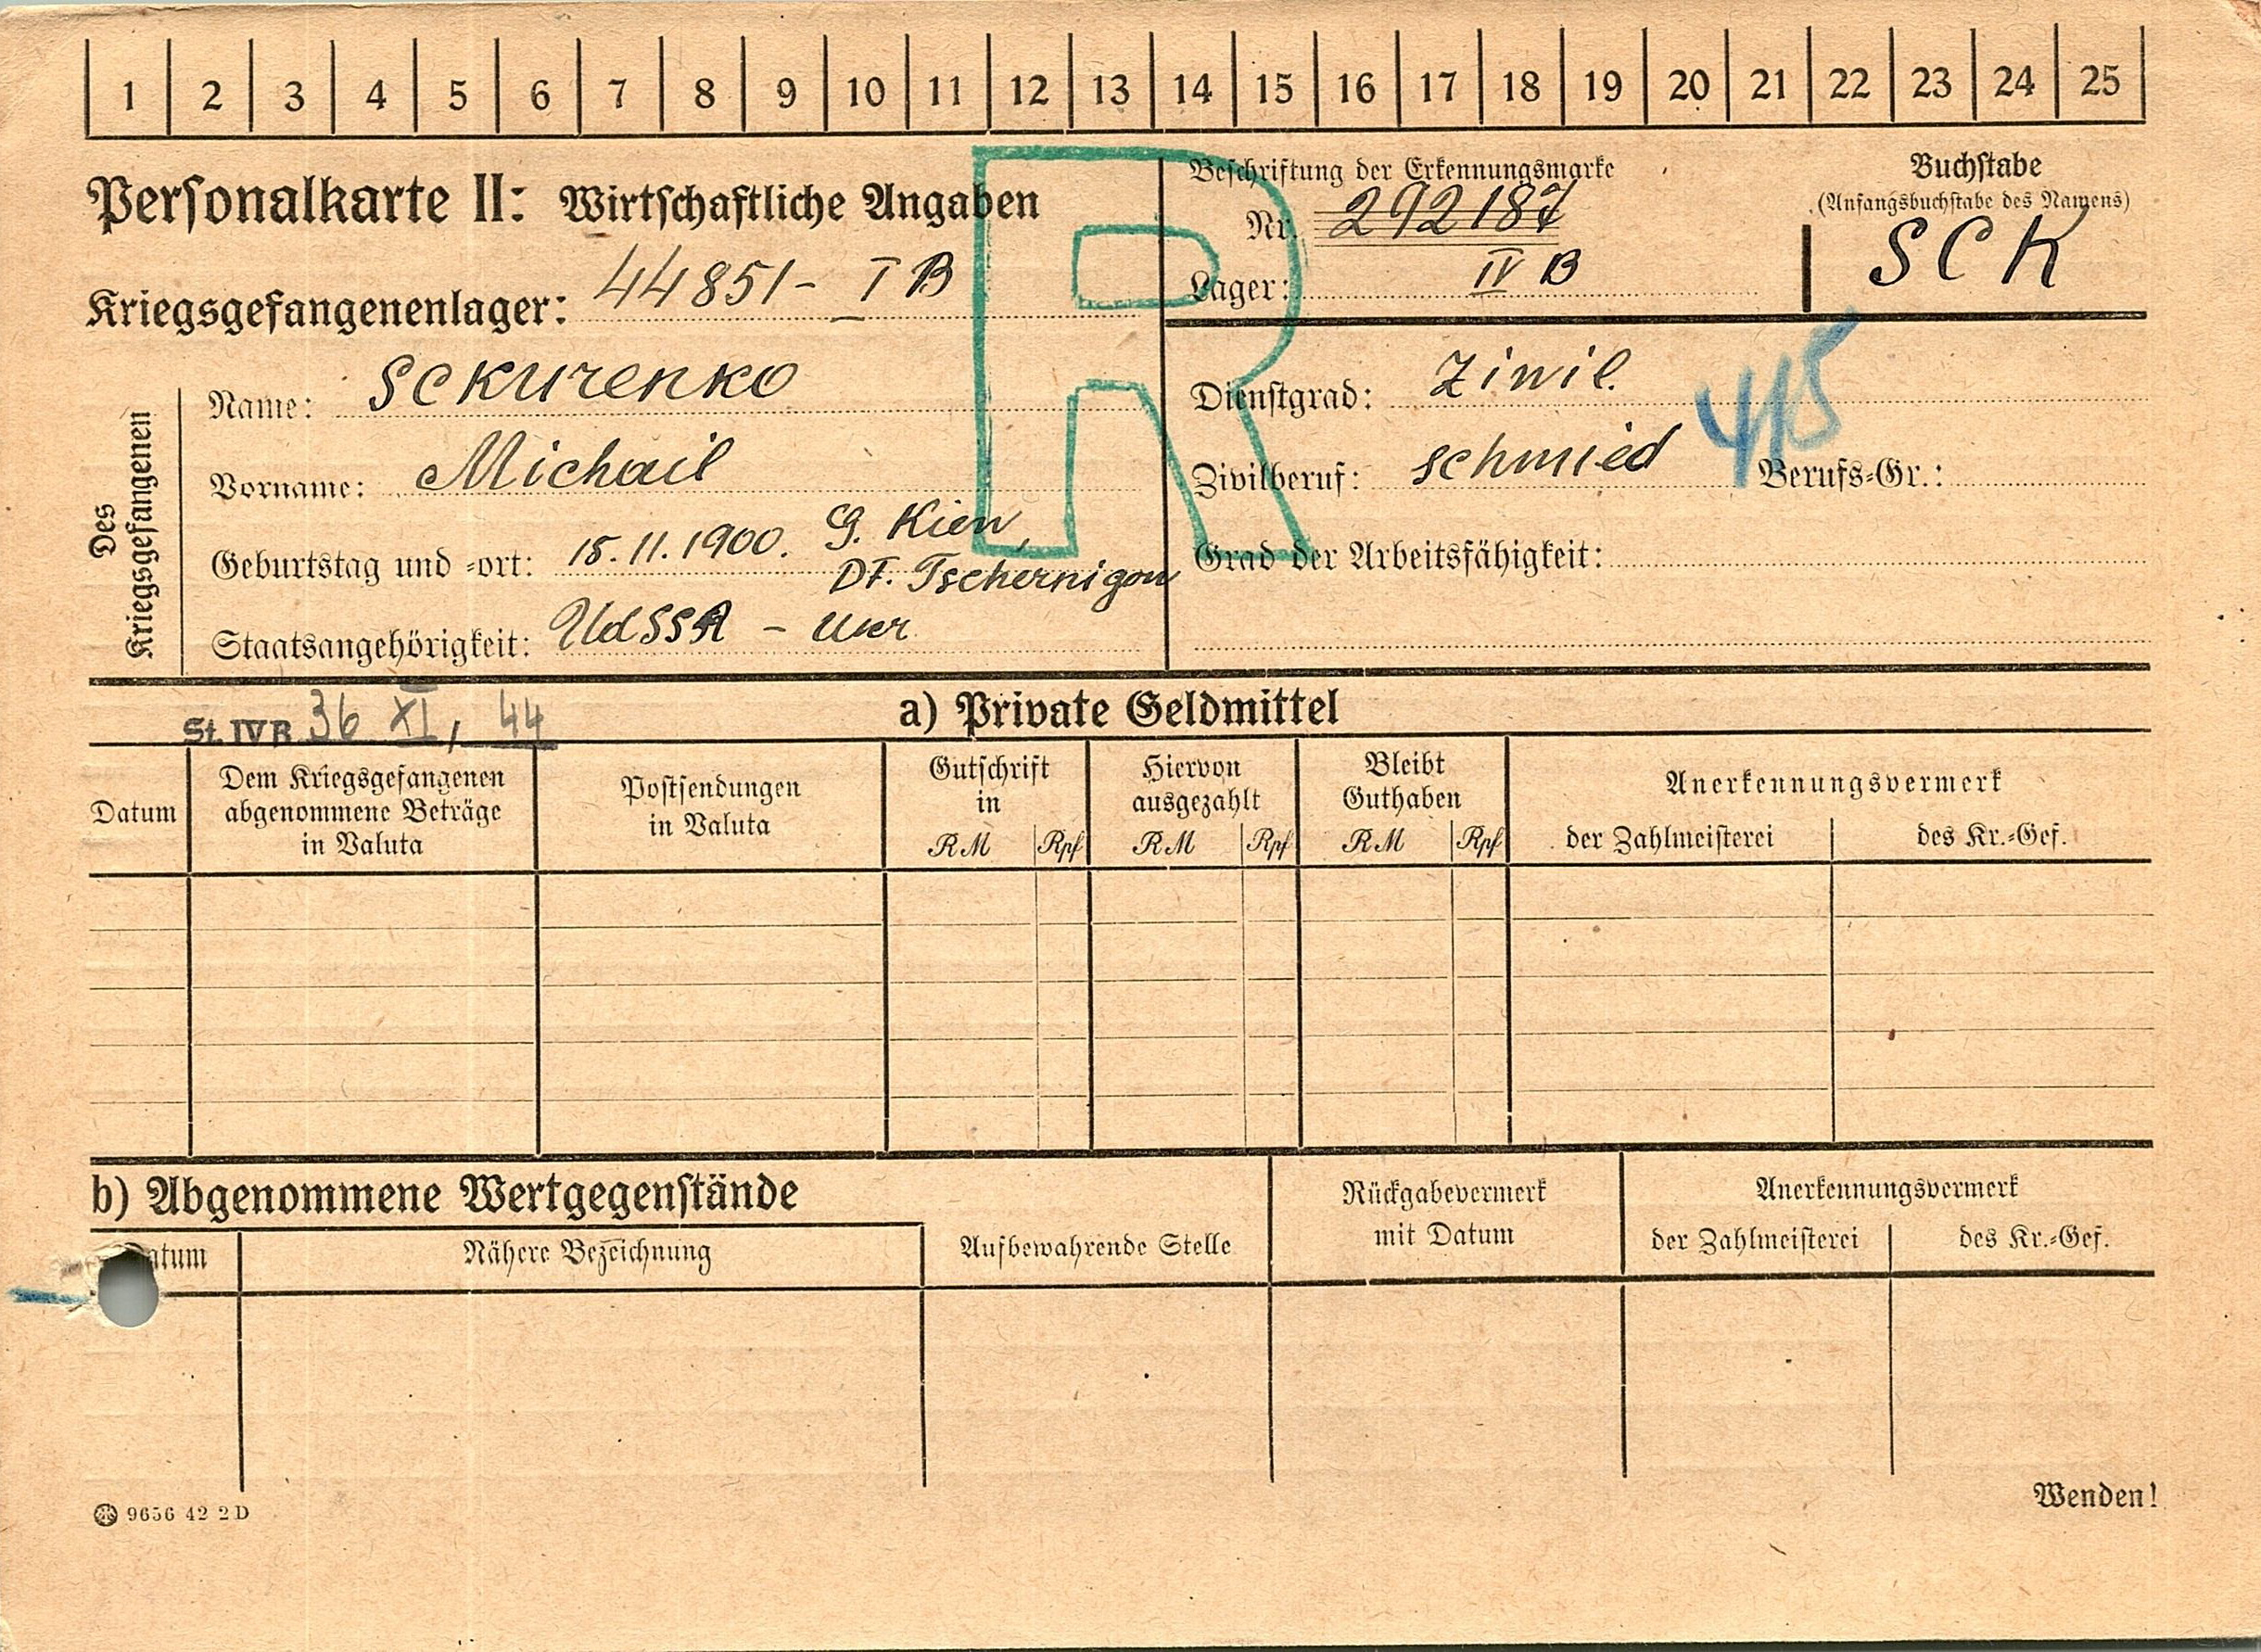 1 2 3 4 5 6 7 8 9 10 11 12 13 14 15 16 17 18 19 20 21 22 23 24 25
Personalkarte II: Wirtschaftliche Angaben
R
Beschriftung der Erkennungsmarke
Nr. 292187
Lager: IV B
Buchstabe
(Anfangsbuchstabe des Namens)
SCK
Kriegsgefangenenlager: 44851 - I B
Des Kriegsgefangenen
Name: Sckurenko
Vorname: Michail
Geburtstag und -ort: 15.11.1900. G. Kiew,
Df. Tschernigow
Staatsangehörigkeit: UdSSR - Ukr.
Dienstgrad: Ziwil.
415
Zivilberuf: schmied Berufs-Gr.:
Grad der Arbeitsfähigkeit:
St. IV B 36 XI, 44
a) Private Geldmittel
Datum
Dem Kriegsgefangenen
abgenommene Beträge
in Valuta
Postsendungen
in Valuta
Gutschrift
in
RM Rpf
Hiervon
ausgezahlt
RM Rpf
Bleibt
Guthaben
RM Rpf
Anerkennungsvermerk
der Zahlmeisterei des Kr.-Gef.
b) Abgenommene Wertgegenstände
Datum
Nähere Bezeichnung
Aufbewahrende Stelle
Rückgabevermerk
mit Datum
Anerkennungsvermerk
der Zahlmeisterei des Kr.-Gef.
9656 42 2 D
Wenden!